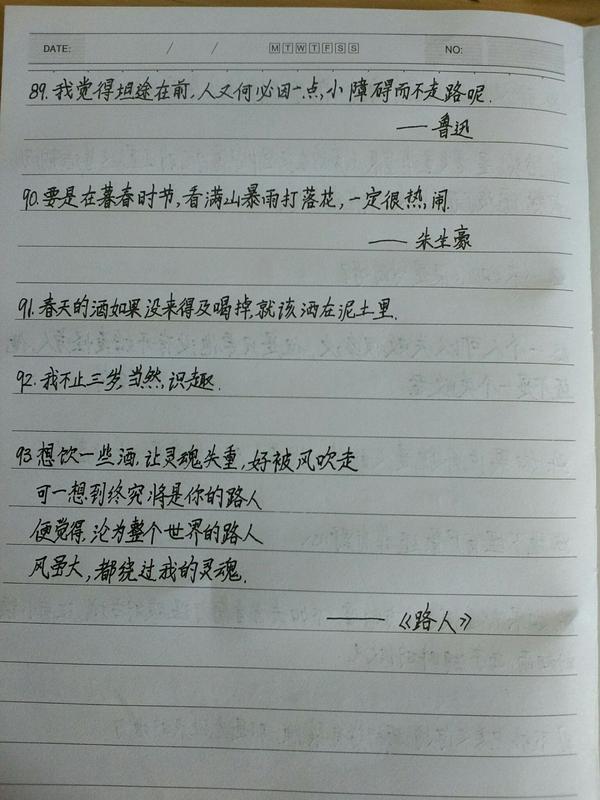 DATE: / / M T W T F S S NO:
89.我觉得坦途在前,人又何必因一点,小障碍而不走路呢.
——鲁迅
90.要是在暮春时节,看满山暴雨打落花,一定很热,闹.
——朱生豪
91.春天的酒如果没来得及喝掉,就该洒在泥土里.
92.我不止三岁,当然,识趣.
93.想饮一些酒,让灵魂失重,好被风吹走
可一想到终究将是你的路人
便觉得,沦为整个世界的路人
风虽大,都绕过我的灵魂.
——《路人》